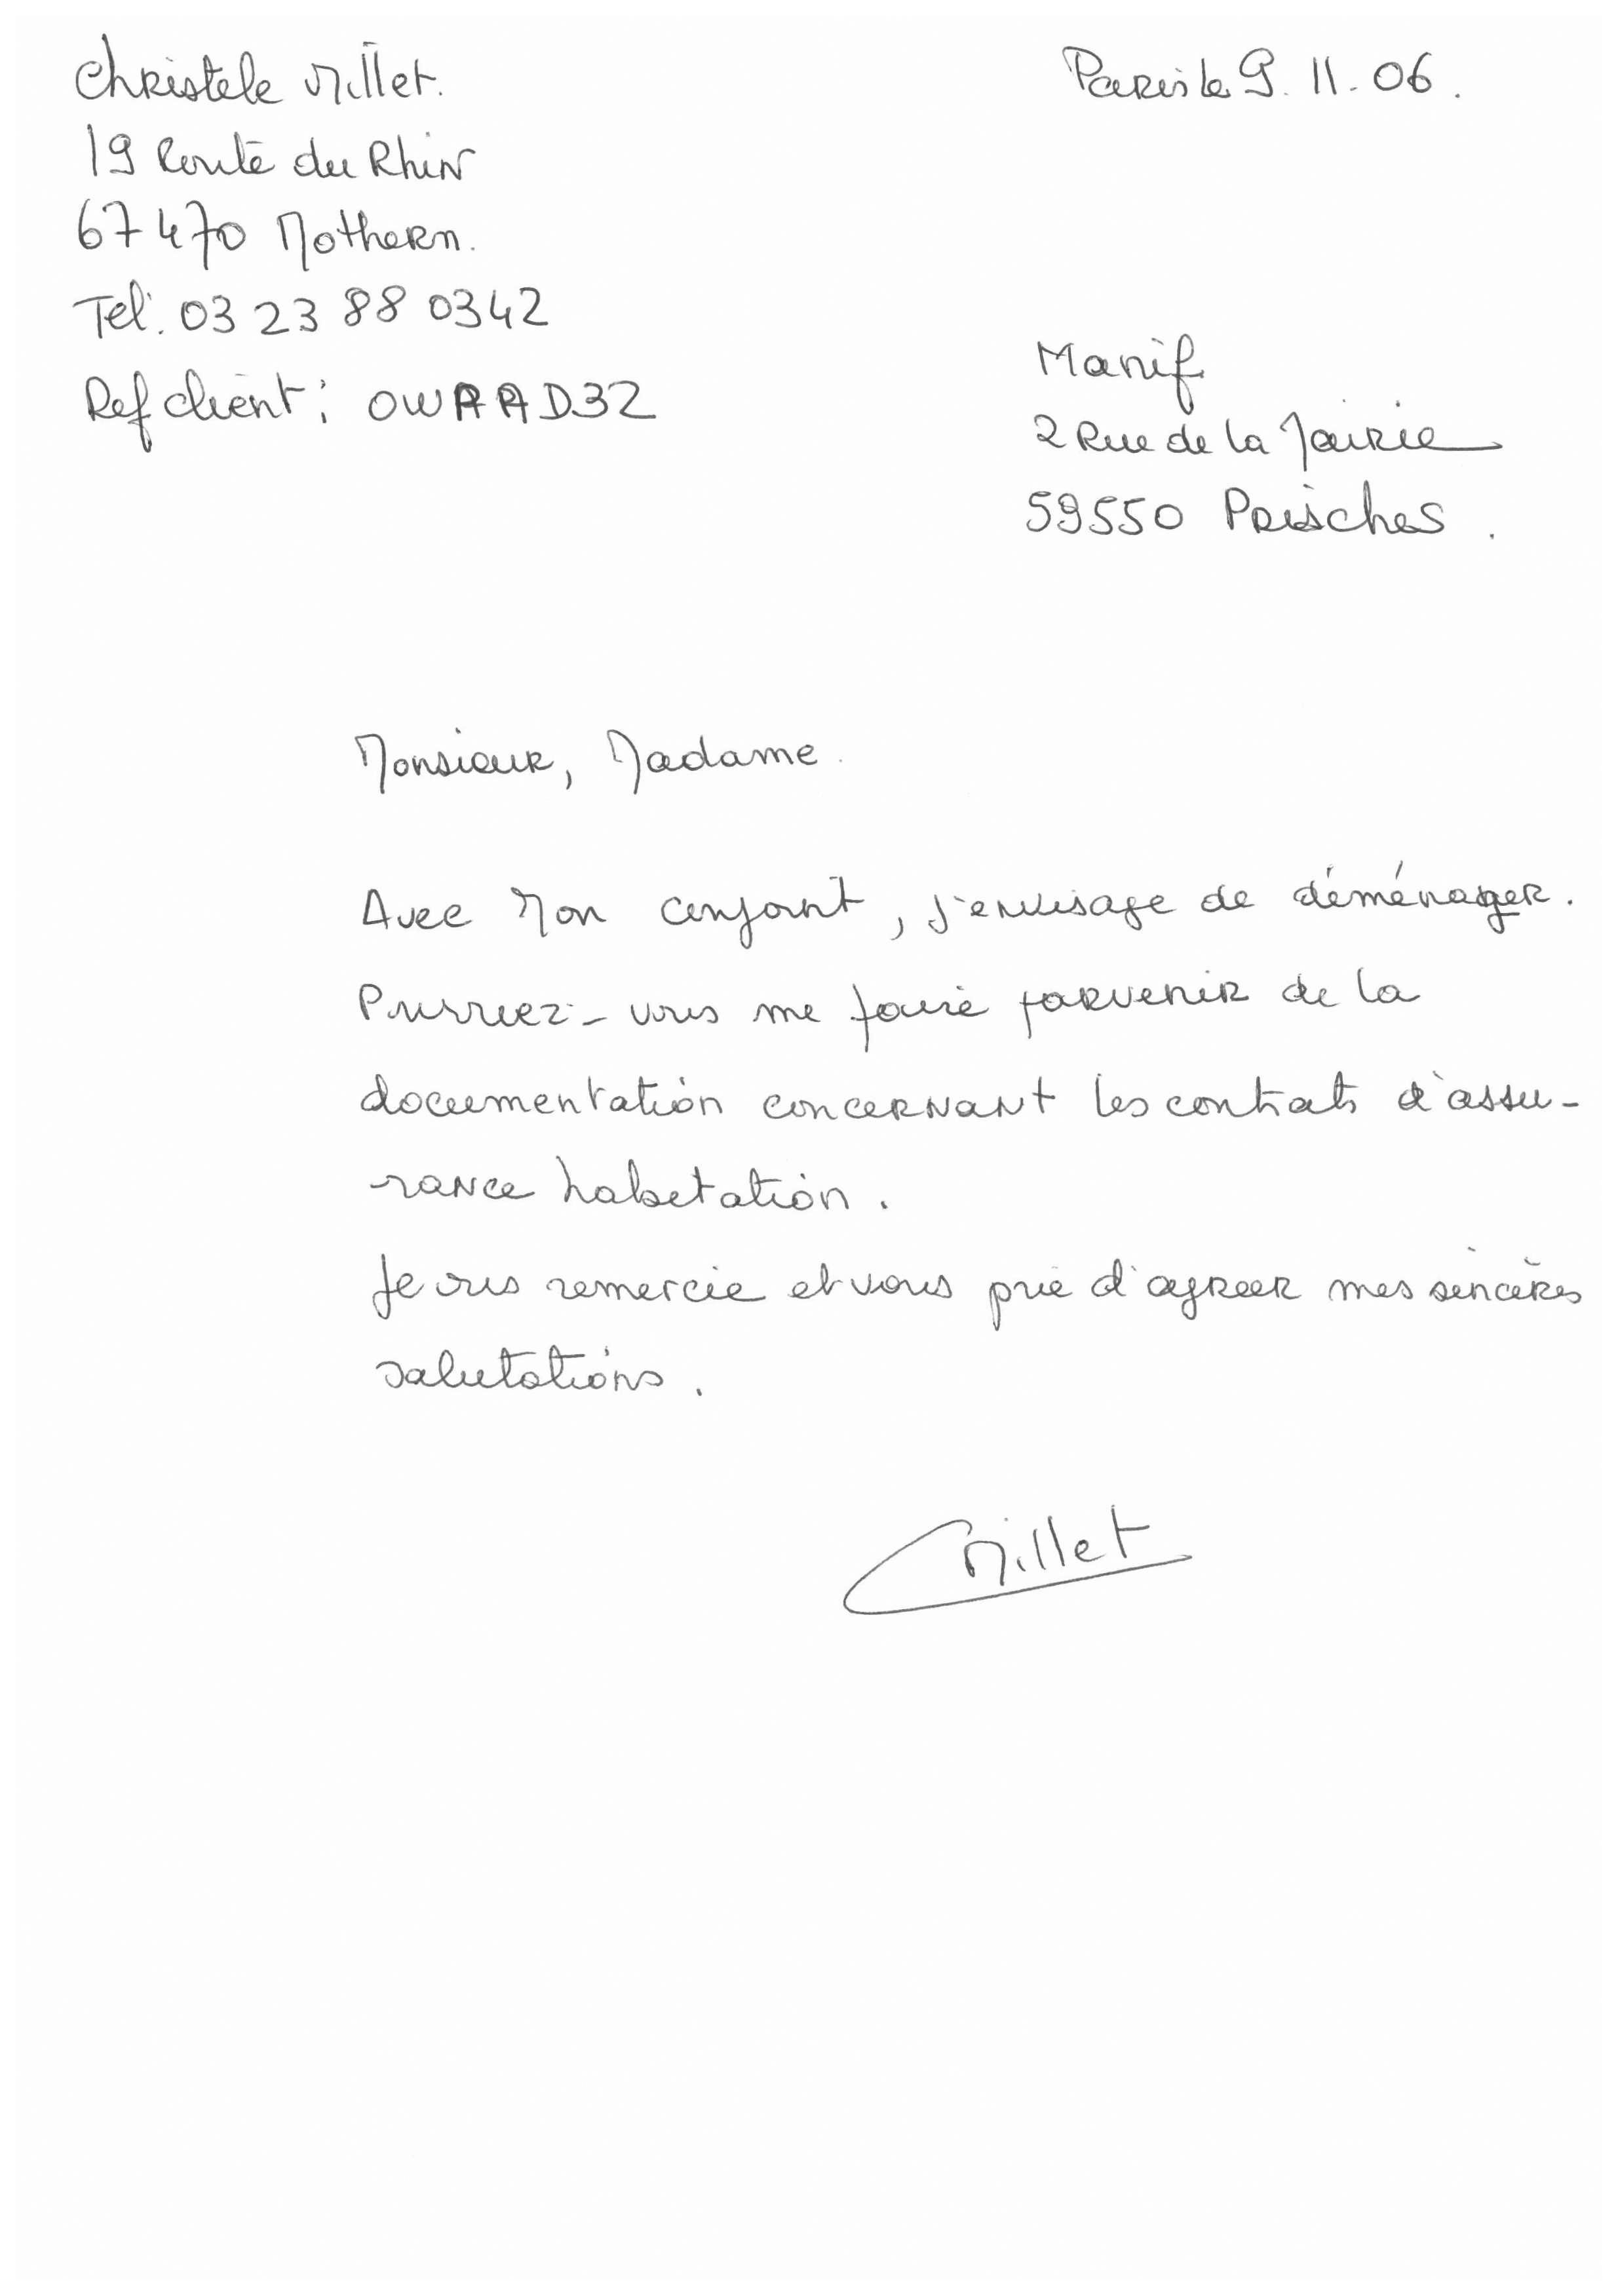 Christele Millet.
Paris le 9.11.06.
19 Route du Rhin
67470 Mothern.
Tel: 03 23 88 0342
Ref client : OWAAD32
Manif
2 Rue de la Mairie
59550 Prisches.
Monsieur, Madame.
Avec Mon conjoint, j'envisage de déménager.
Pourriez-vous me faire parvenir de la
documentation concernant les contrats d'assu-
rance habitation.
Je vous remercie et vous prie d'agréer mes sincères
salutations.
CMillet